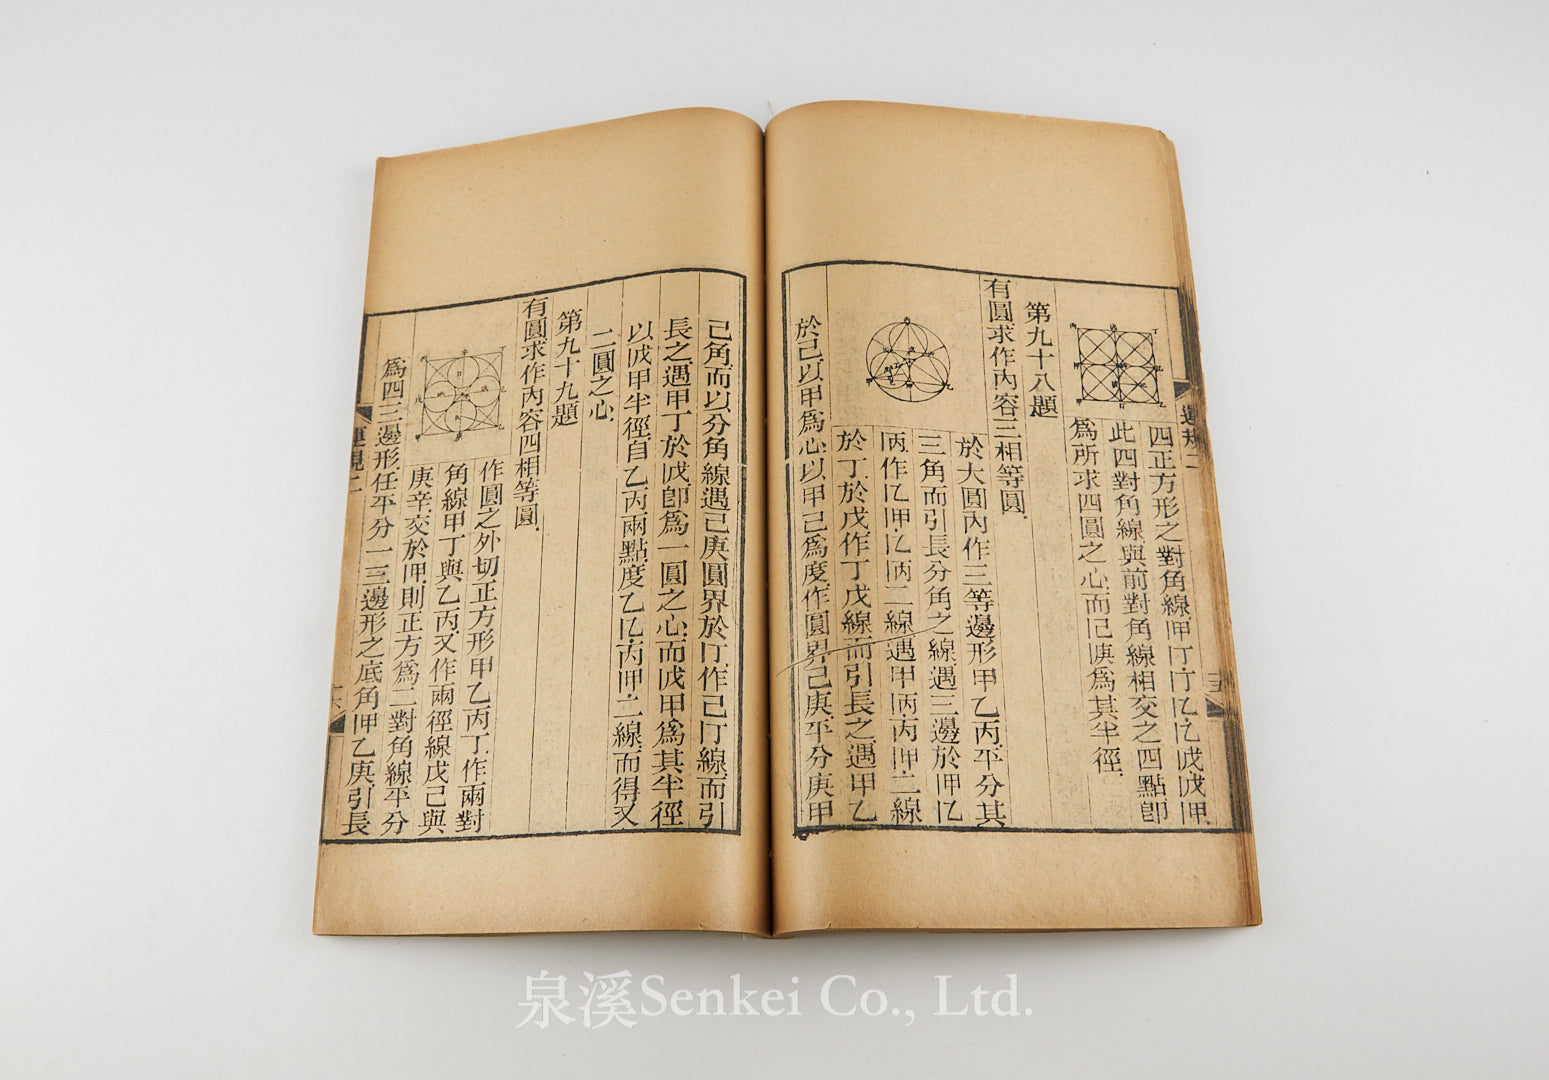 四正方形之對角線呷叮叮𠮙𠮙
此四對角線與前對角線相交之四點即
為所求四圓之心而為其半徑
第九十八題
有圓求作內容三相等圓
於大圓內作三等邊形甲乙丙平分其
三角而引長分角之線遇三邊於呷𠮙
作𠮙呷𠮙二線遇甲丙丙呷二線
於丁於戊作丁戊線而引長之遇甲乙
於己以甲爲心以甲己爲度作圓界己庚平分庚甲
己角而以分角線遇己庚圓界於叮作己叮線而引
長之遇甲丁於即爲一圓之心而甲爲其半徑
以甲半徑自乙丙兩點度乙𠮙丙呷二線而得又
二圓之心
第九十九題
有圓求作內容四相等圓
作圓之外切正方形甲乙丙丁作兩對
角線甲丁與乙丙又作兩徑線戊己與
庚辛交於呷則正方爲二對角線平分
爲四三邊形任平分一三邊形之底角呷乙庚引長